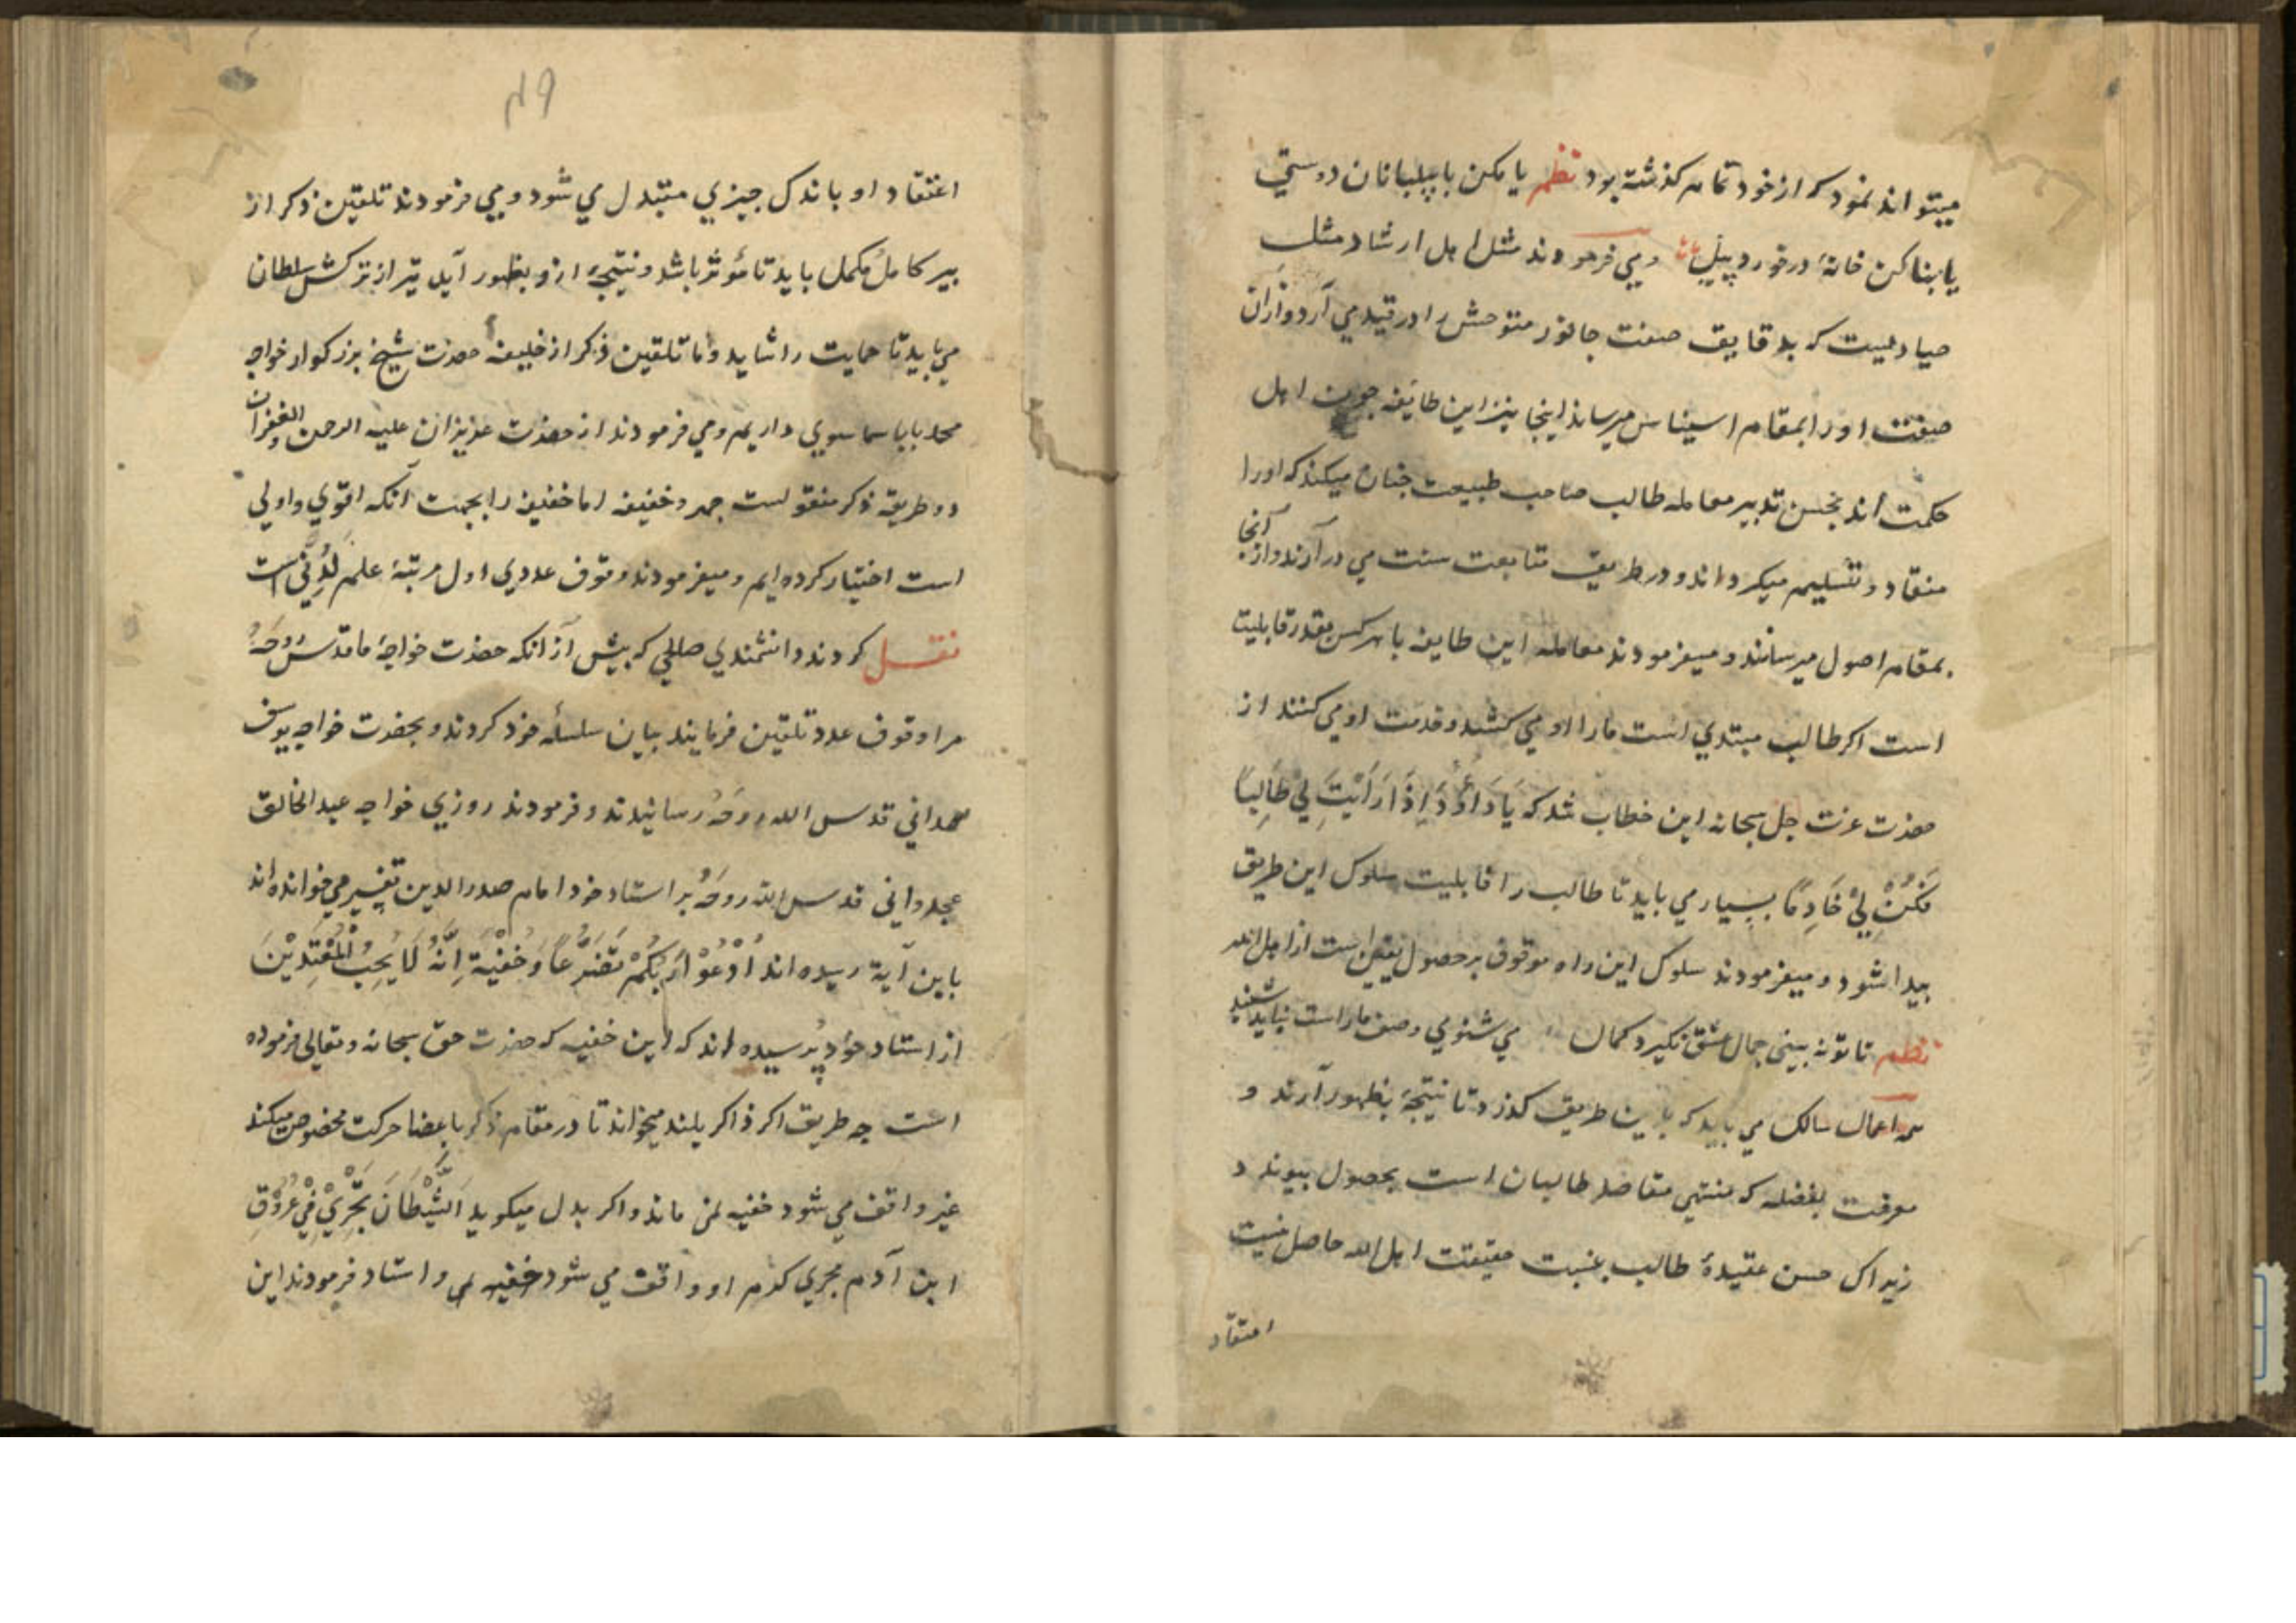 میتواند نمود که از خود تمام کذشته بود نظم یا مکن با پیلبانان دوستي
یا بنا کن خانهٔ در خورد پیل و مي فرمودند مثل اهل ارشاد مثل
صیادیست که بدقایق صنعت جانور متوحش را در قید مي آرد و از آن
صفت او را بمقام استیناس میرساند اینجا نیز این طایفه چون اهل
حکمت اند بحسن تدبیر معامله طالب صاحب طبیعت چنان میکند که او را
منقاد و تسلیم میکرداند و در طریق متابعت سنت مي درآرند و از آنجا
بمقام اصول میرسانند و میفرمودند معامله این طایفه با هر کس بقدر قابلیت
است اکر طالب مبتدي است ما را او مي کشد و خدمت او مي کنند از
حضرت عزت جل سبحانه این خطاب شد که یَا دَاوُدُ اِذَا رَاَیْتَ لِيْ طَالِبًا
فَکُنْ لِيْ خَادِمًا بسیار مي باید تا طالب را قابلیت سلوک این طریق
پیدا شود و میفرمودند سلوک این راه موقوف بر حصول یقین است از اهل الله
نظم تا تو نه بینی جمال عشق نکیرد کمال مي شنوي وصف ما راست نیاید شنید
همه اعمال سالک مي باید که باین طریق کذرد تا نتیجه بظهور آرند و
معرفت بفضله که منتهي مقاصد طالبان است بحصول پیوندد
زیراک حسن عقیدهٔ طالب بنسبت حقیقت اهل الله حاصل نیست
اعتقاد
۴۹
اعتقاد او باندک چیزي متبدل مي شود و مي فرمودند تلقین ذکر از
پیر کامل مکمل باید تا مؤثر باشد و نتیجهٔ ازو بظهور آید تیر از ترکش سلطان
مي باید تا حمایت را شاید و ما تلقین ذکر از خلیفهٔ حضرت شیخ بزرکوار خواجه
محمد بابا سماسوي داریم و مي فرمودند از حضرت عزیزان علیه الرحمن والغفران
دو طریقه ذکر منقولست جهر و خفیفه اما خفیفه را بجهت آنکه اقوي و اولی
است اختیار کرده ایم و میفرمودند وقوف عددي اول مرتبهٔ علم لَدُنّي است
نقل کردند دانشمندي صالحي که پیش از آنکه حضرت خواجهٔ ما قدس رُوحَهُ
مرا وقوف عدد تلقین فرمایند بیان سلسله خود کردند و بحضرت خواجه یوسف
همداني قدس الله روحَهُ رسانیدند و فرمودند روزي خواجه عبد الخالق
غجدواني قدس الله روحَهُ بر استاد خود امام صدر الدین تفسیر مي خوانده اند
باین آیة رسیده اند اُدْعُوْا رَبَّکُمْ تَضَرُّعًا وَخُفْیَةً اِنَّهُ لَا یُحِبُّ الْمُعْتَدِیْنَ
از استاد خود پُرسیده اند که این خفیه که حضرت حق سبحانه و تعالی فرموده
است چه طریق اکر ذاکر بلند میخواند تا در مقام ذکر با عضا حرکت مخصوص میکند
غیر واقف مي شود خفیه نمي ماند و اکر بدل میکوید اَلشَّیْطَانَ یَجْرِيْ فِيْ عُرُوْقِ
ابن آدم مجري کدم او واقف مي شود خفیه ني و استاد فرمودند این